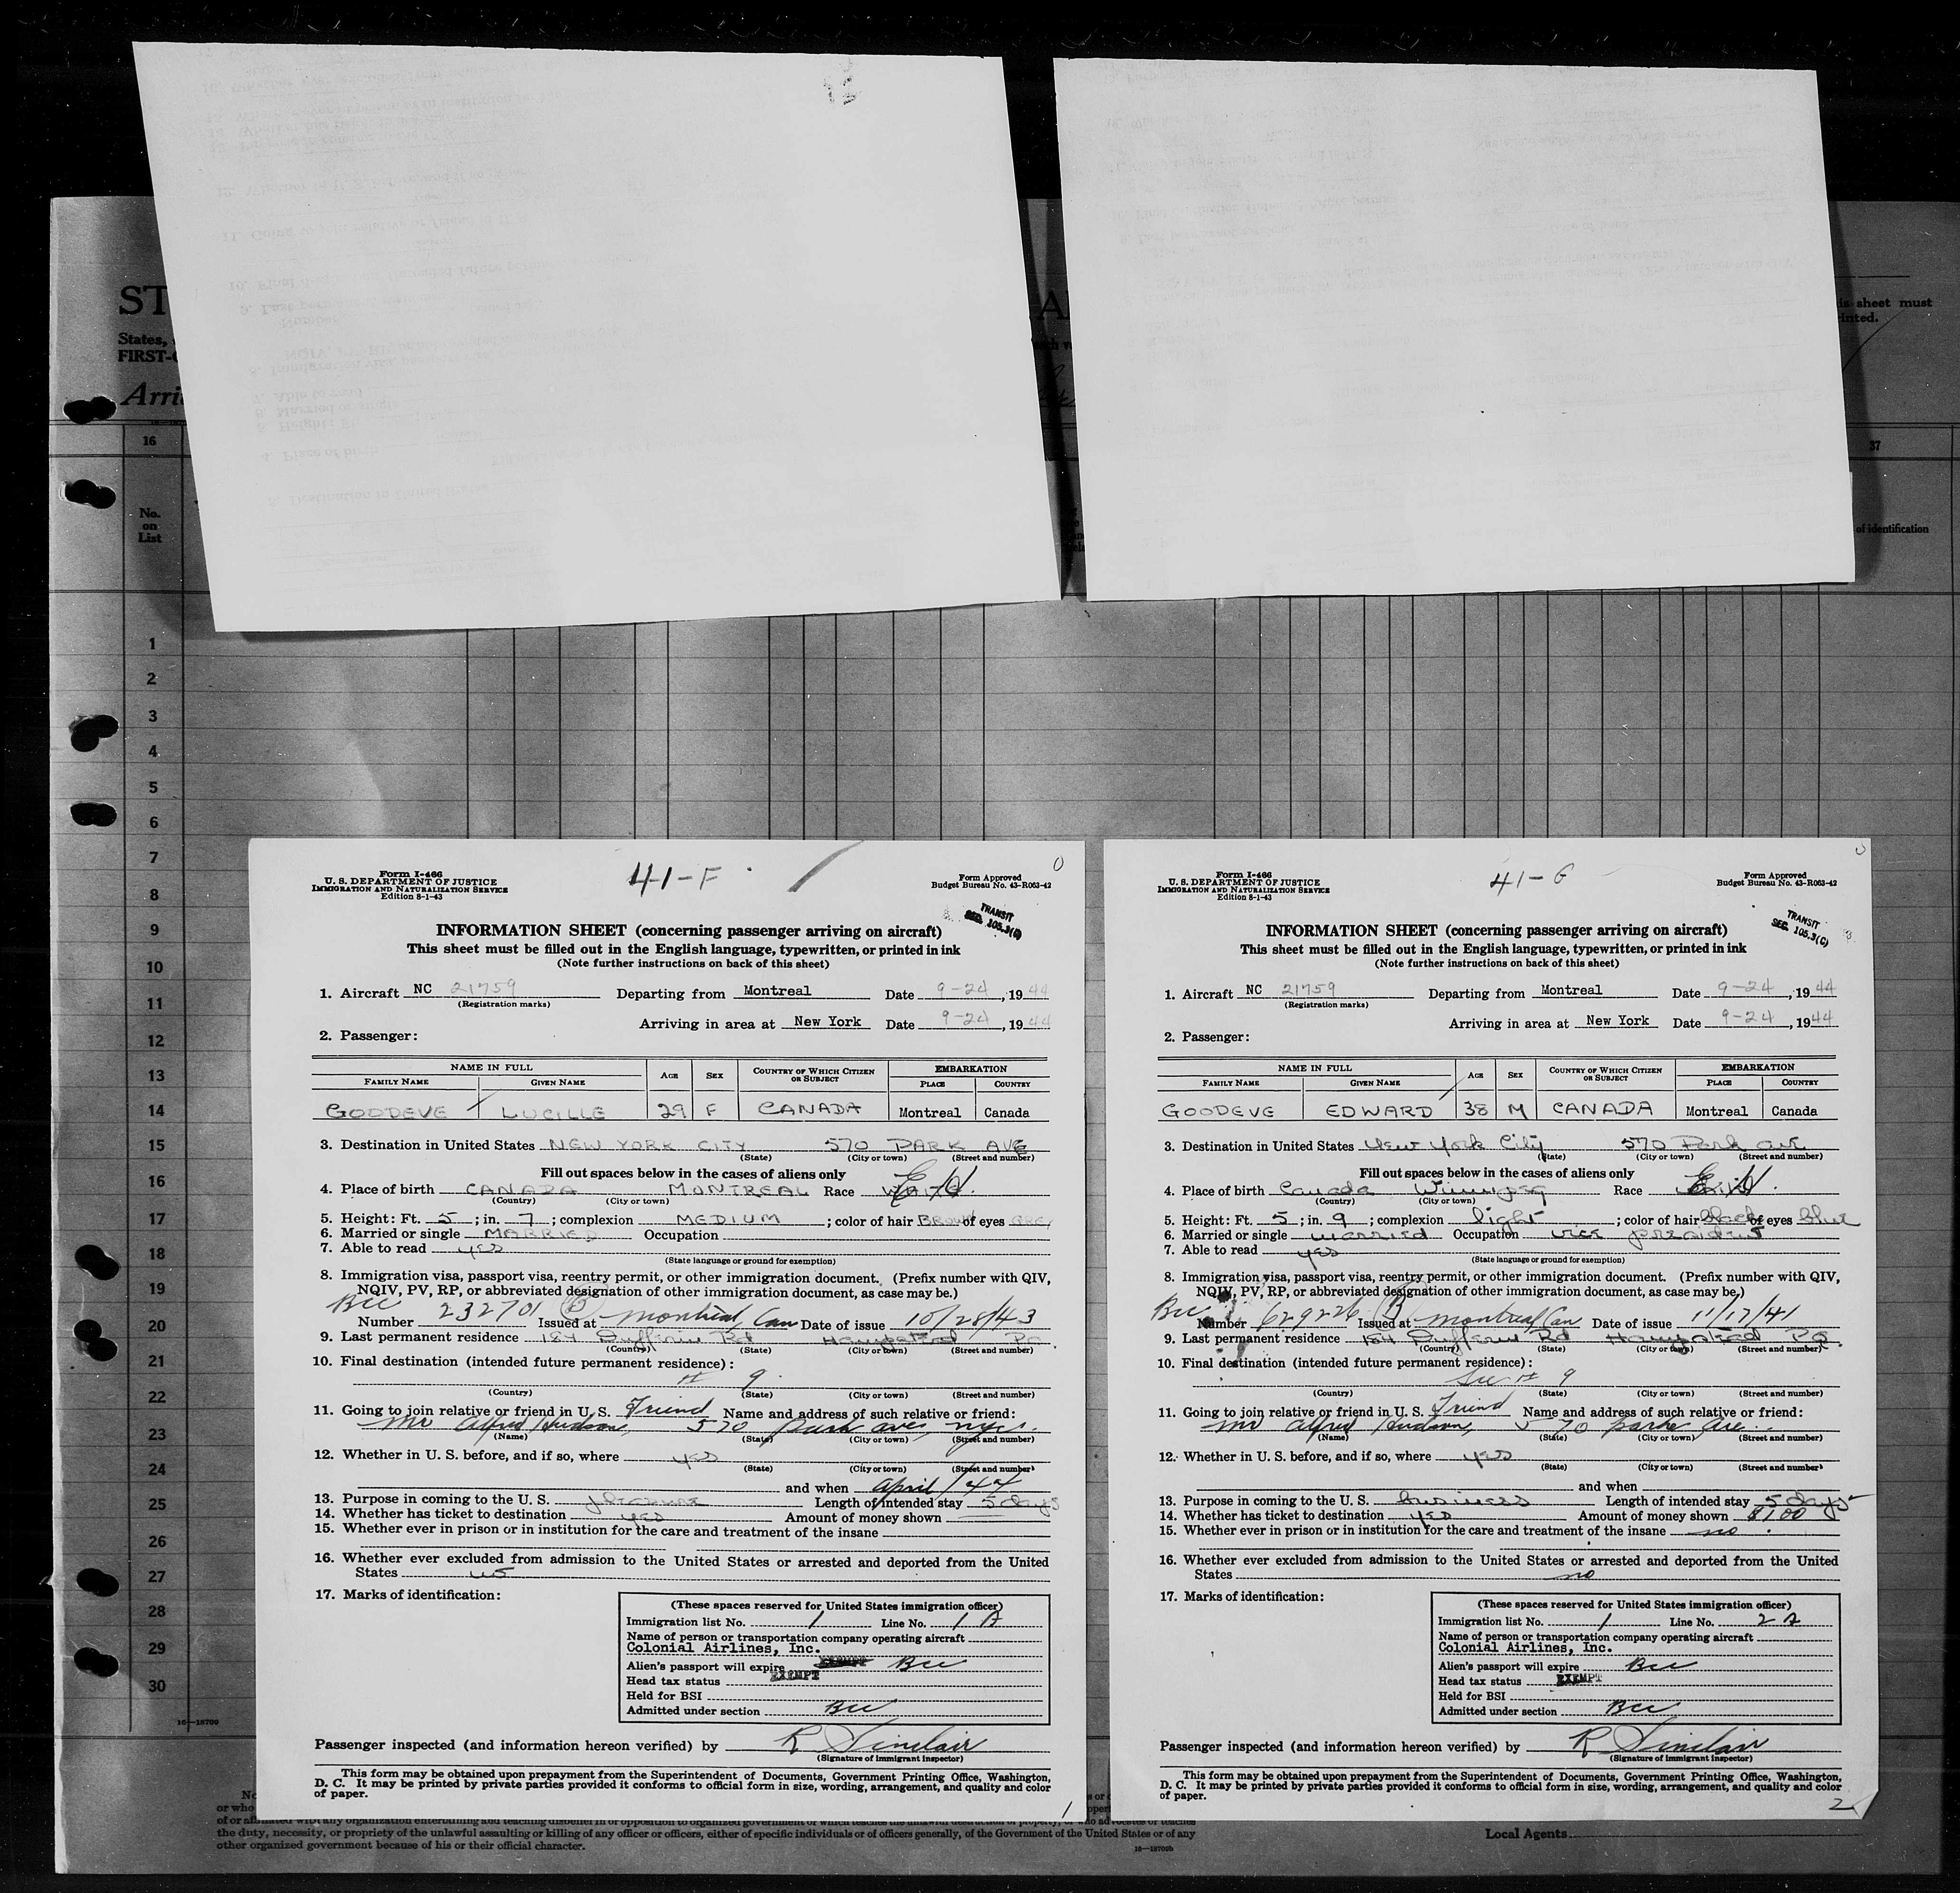 ST
States,
FIRST-C
Arri
is sheet must
inted.
16
37
No.
on
List
of identification
1
2
3
4
5
6
7
8
9
10
11
12
13
14
15
16
17
18
19
20
21
22
23
24
25
26
27
28
29
30
16—18700
Form I-466
U. S. DEPARTMENT OF JUSTICE
IMMIGRATION AND NATURALIZATION SERVICE
Edition 8-1-43
41-F
Form Approved
Budget Bureau No. 43-R063-42
TRANSIT
SEC. 105.3(C)
INFORMATION SHEET (concerning passenger arriving on aircraft)
This sheet must be filled out in the English language, typewritten, or printed in ink
(Note further instructions on back of this sheet)
1. Aircraft NC 21759 Departing from Montreal Date 9-24, 1944
(Registration marks)
Arriving in area at New York Date 9-24, 1944
2. Passenger:
NAME IN FULL AGE SEX COUNTRY OF WHICH CITIZEN OR SUBJECT EMBARKATION
FAMILY NAME GIVEN NAME PLACE COUNTRY
GOODEVE LUCILLE 29 F CANADA Montreal Canada
3. Destination in United States NEW YORK CITY 570 PARK AVE
(State) (City or town) (Street and number)
Fill out spaces below in the cases of aliens only
4. Place of birth CANADA MONTREAL Race WHITE
(Country) (City or town)
5. Height: Ft. 5; in. 7; complexion MEDIUM; color of hair BROWN of eyes GREY
6. Married or single MARRIED Occupation
7. Able to read yes
(State language or ground for exemption)
8. Immigration visa, passport visa, reentry permit, or other immigration document. (Prefix number with QIV,
NQIV, PV, RP, or abbreviated designation of other immigration document, as case may be.)
Bcc
Number 232701 B Issued at Montreal, Can Date of issue 10/28/43
9. Last permanent residence 184 Dufferin Rd Hampstead PQ
(Country) (State) (City or town) (Street and number)
10. Final destination (intended future permanent residence):
# 9
(Country) (State) (City or town) (Street and number)
11. Going to join relative or friend in U. S. Friend Name and address of such relative or friend:
Mr Alfred Hudson, 570 Park ave, nyc.
(Name) (State) (City or town) (Street and number)
12. Whether in U. S. before, and if so, where yes
(State) (City or town) (Street and number)
and when April/44
13. Purpose in coming to the U. S. pleasure Length of intended stay 5 days
14. Whether has ticket to destination yes Amount of money shown
15. Whether ever in prison or in institution for the care and treatment of the insane
16. Whether ever excluded from admission to the United States or arrested and deported from the United
States
17. Marks of identification:
(These spaces reserved for United States immigration officer)
Immigration list No. 1 Line No. 1 A
Name of person or transportation company operating aircraft
Colonial Airlines, Inc.
Alien's passport will expire EXEMPT Bcc
Head tax status EXEMPT
Held for BSI
Admitted under section Bcc
Passenger inspected (and information hereon verified) by R Sinclair
(Signature of immigrant inspector)
This form may be obtained upon prepayment from the Superintendent of Documents, Government Printing Office, Washington,
D. C. It may be printed by private parties provided it conforms to official form in size, wording, arrangement, and quality and color
of paper.
1
Form I-466
U. S. DEPARTMENT OF JUSTICE
IMMIGRATION AND NATURALIZATION SERVICE
Edition 8-1-43
41-G
Form Approved
Budget Bureau No. 43-R063-42
TRANSIT
SEC. 105.3(C)
INFORMATION SHEET (concerning passenger arriving on aircraft)
This sheet must be filled out in the English language, typewritten, or printed in ink
(Note further instructions on back of this sheet)
1. Aircraft NC 21759 Departing from Montreal Date 9-24, 1944
(Registration marks)
Arriving in area at New York Date 9-24, 1944
2. Passenger:
NAME IN FULL AGE SEX COUNTRY OF WHICH CITIZEN OR SUBJECT EMBARKATION
FAMILY NAME GIVEN NAME PLACE COUNTRY
GOODEVE EDWARD 38 M CANADA Montreal Canada
3. Destination in United States New York City 570 Park ave
(State) (City or town) (Street and number)
Fill out spaces below in the cases of aliens only
4. Place of birth Canada Winnipeg Race
(Country) (City or town)
5. Height: Ft. 5; in. 9; complexion light; color of hair black of eyes blue
6. Married or single married Occupation vice president
7. Able to read yes
(State language or ground for exemption)
8. Immigration visa, passport visa, reentry permit, or other immigration document. (Prefix number with QIV,
NQIV, PV, RP, or abbreviated designation of other immigration document, as case may be.)
Bcc
Number 629226 B Issued at Montreal Can Date of issue 11/17/41
9. Last permanent residence 184 Dufferin Rd Hampstead PQ.
(Country) (State) (City or town) (Street and number)
10. Final destination (intended future permanent residence):
See # 9
(Country) (State) (City or town) (Street and number)
11. Going to join relative or friend in U. S. Friend Name and address of such relative or friend:
Mr Alfred Hudson, 570 Park Ave.
(Name) (State) (City or town) (Street and number)
12. Whether in U. S. before, and if so, where yes
(State) (City or town) (Street and number)
and when
13. Purpose in coming to the U. S. business Length of intended stay 5 days
14. Whether has ticket to destination yes Amount of money shown $100
15. Whether ever in prison or in institution for the care and treatment of the insane no
16. Whether ever excluded from admission to the United States or arrested and deported from the United
States no
17. Marks of identification:
(These spaces reserved for United States immigration officer)
Immigration list No. 1 Line No. 2 A
Name of person or transportation company operating aircraft
Colonial Airlines, Inc.
Alien's passport will expire Bcc
Head tax status EXEMPT
Held for BSI
Admitted under section Bcc
Passenger inspected (and information hereon verified) by R Sinclair
(Signature of immigrant inspector)
This form may be obtained upon prepayment from the Superintendent of Documents, Government Printing Office, Washington,
D. C. It may be printed by private parties provided it conforms to official form in size, wording, arrangement, and quality and color
of paper.
2
the duty, necessity, or propriety of the unlawful assaulting or killing of any officer or officers, either of specific individuals or of officers generally, of the Government of the United States or of any
other organized government because of his or their official character.
16—18700b
Local Agents